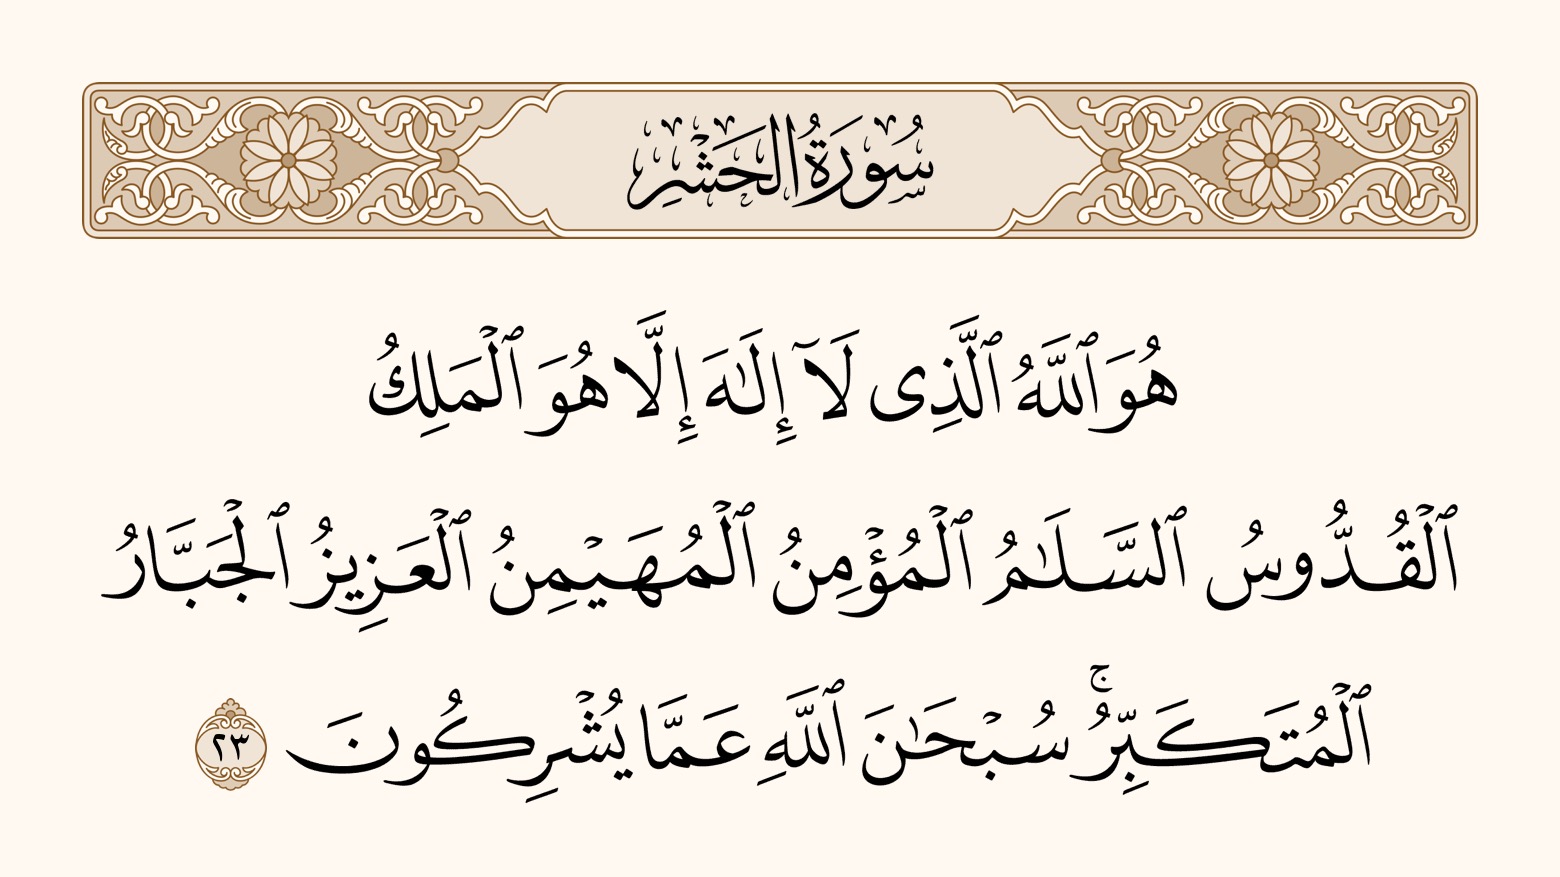 سُورَةُ الحَشْرِ
هُوَ ٱللَّهُ ٱلَّذِى لَآ إِلَٰهَ إِلَّا هُوَ ٱلْمَلِكُ
ٱلْقُدُّوسُ ٱلسَّلَٰمُ ٱلْمُؤْمِنُ ٱلْمُهَيْمِنُ ٱلْعَزِيزُ ٱلْجَبَّارُ
ٱلْمُتَكَبِّرُ ۚ سُبْحَٰنَ ٱللَّهِ عَمَّا يُشْرِكُونَ ٢٣